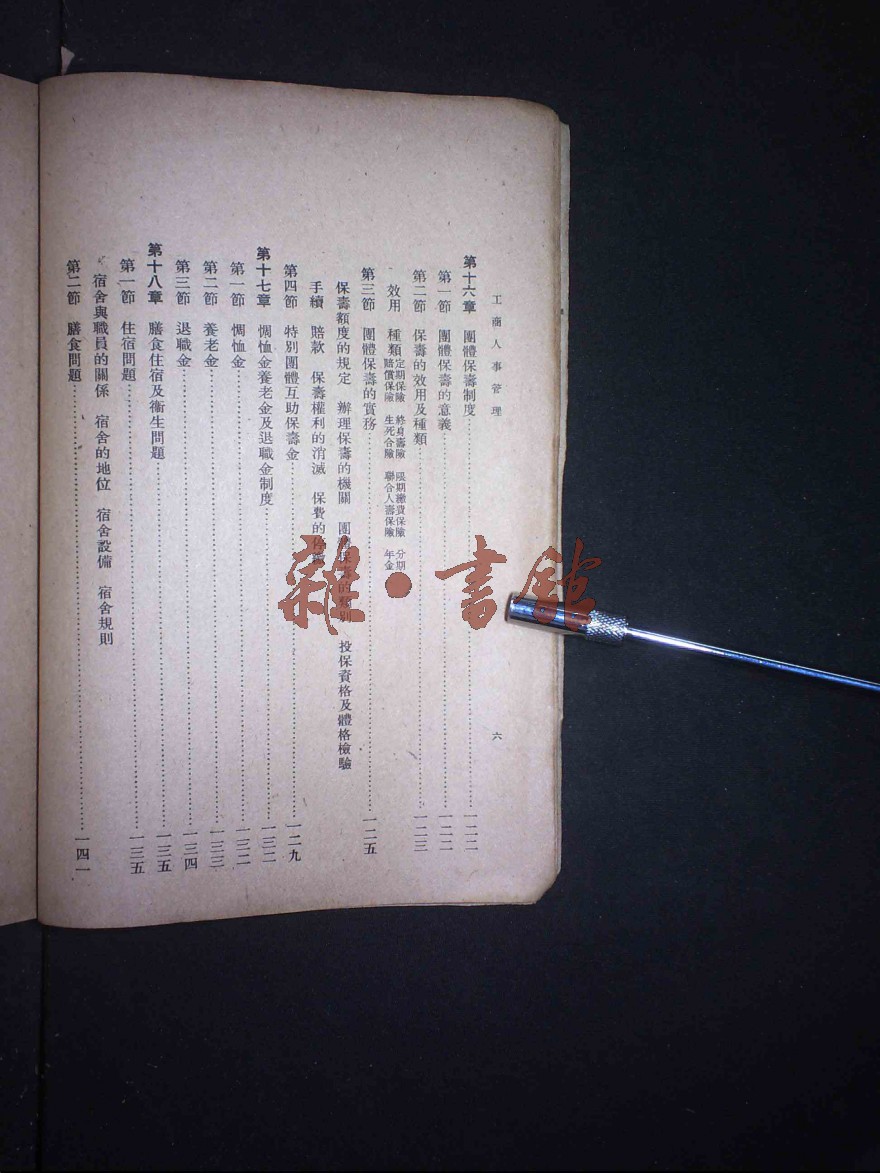 工商人事管理
六
第十六章 團體保壽制度……一二二
第一節 團體保壽的意義……一二二
第二節 保壽的效用及種類……一二三
效用 種類 定期保險 終身壽險 限期繳費保險 分期
賠償保險 生死合險 聯合人壽保險 年金
第三節 團體保壽的實務……一二五
保壽額度的規定 辦理保壽的機關 團體保壽的類別 投保資格及體格檢驗
手續 賠款 保壽權利的消滅 保費的
第四節 特別團體互助保壽金……一二九
第十七章 惆恤金養老金及退職金制度……一三二
第一節 惆恤金……一三二
第二節 養老金……一三三
第三節 退職金……一三四
第十八章 膳食住宿及衞生問題……一三五
第一節 住宿問題……一三五
宿舍與職員的關係 宿舍的地位 宿舍設備 宿舍規則
第二節 膳食問題……一四一
雜·書館